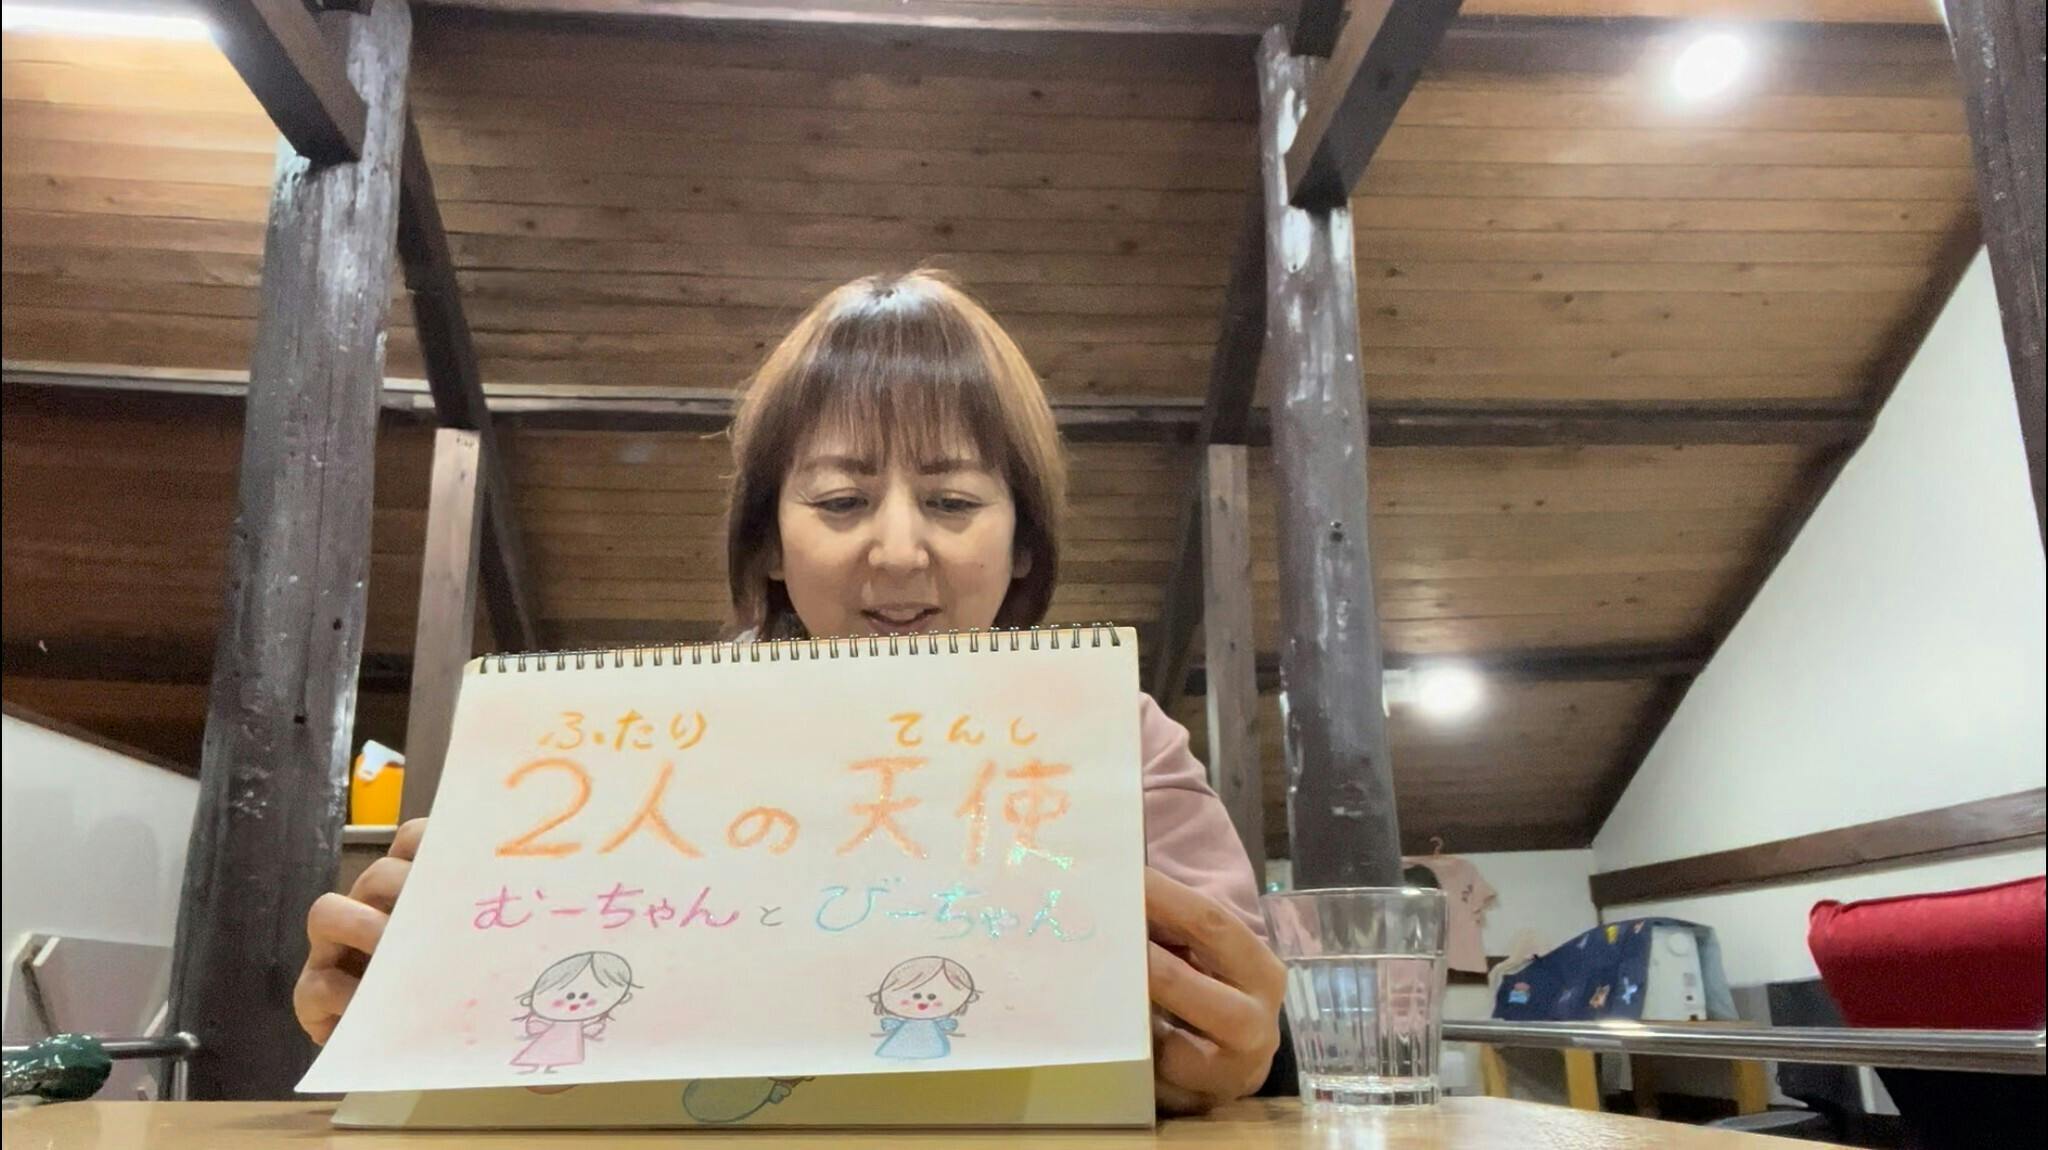 ふたり てんし
2人の天使
むーちゃんとびーちゃん